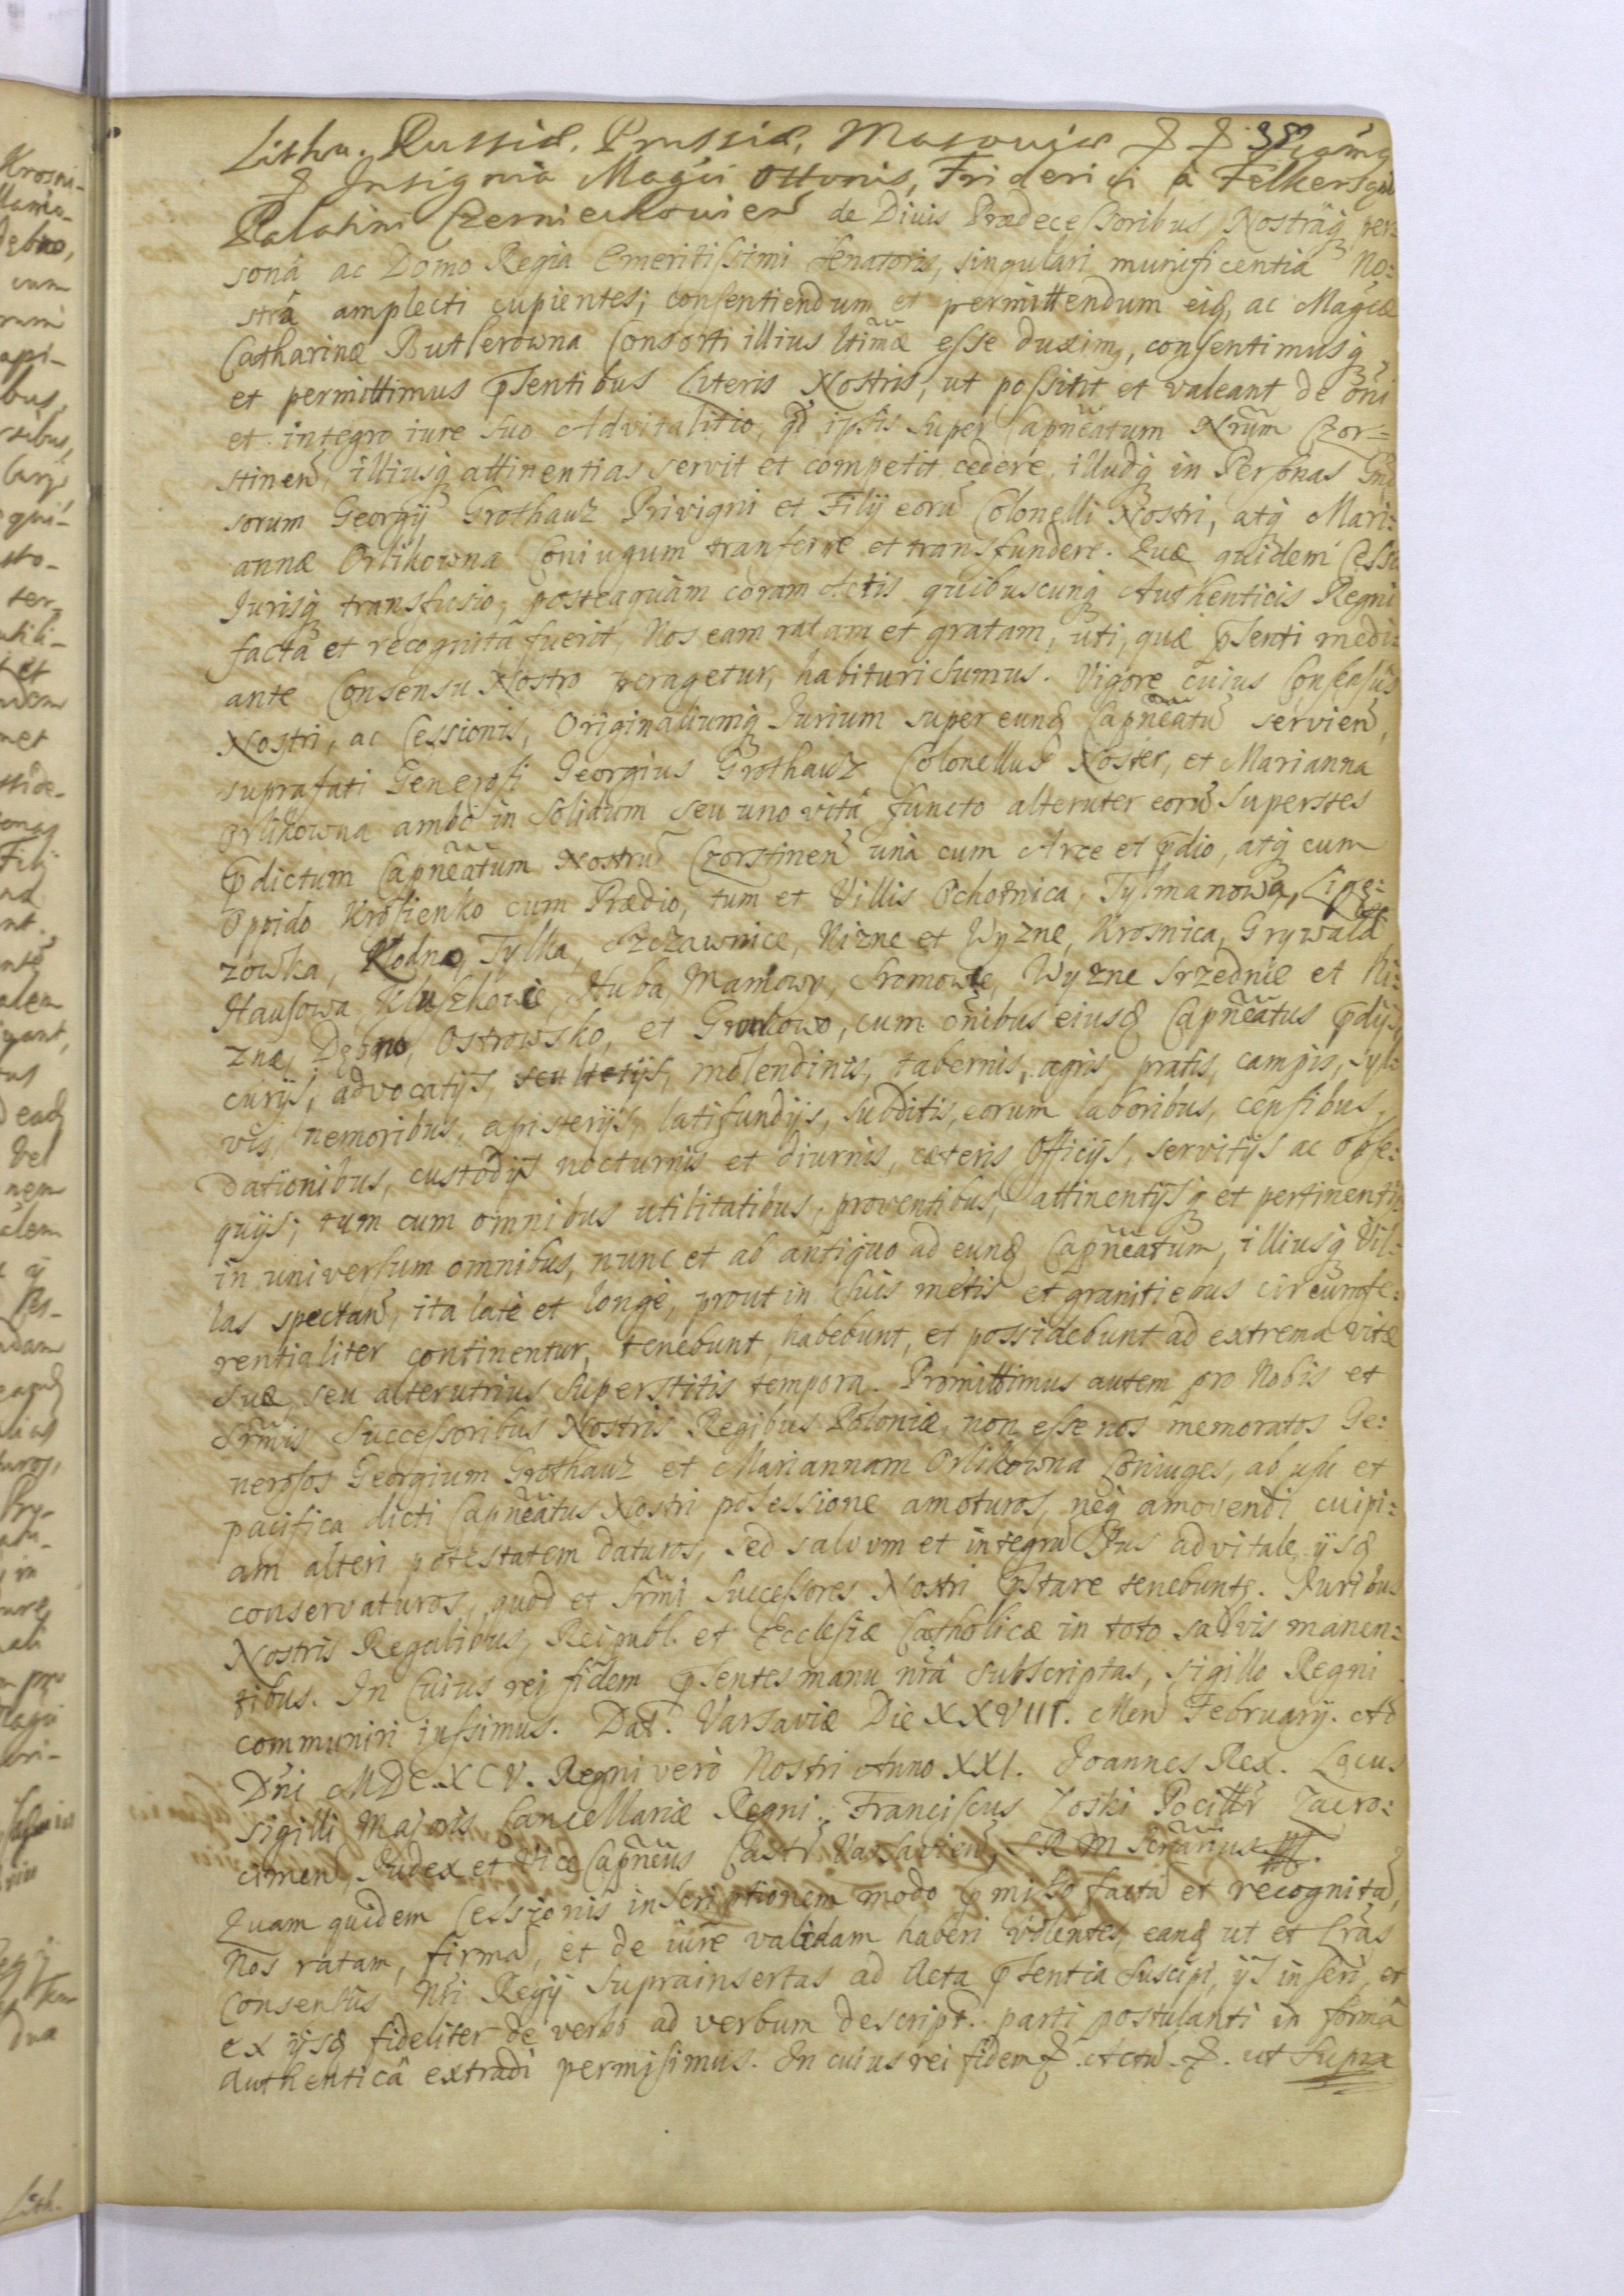 Lithu. Russiæ, Prussiæ, Masouiæ
Insignia Magci Ottonis, Friderici à Felkersam
Palatini Czerniechouien̄ de Diuis Prædecessoribus, Nostraq, per=
sonâ ac Domo Regia Emeritissimi Senatoris, singulari munificentia No=
strâ amplecti cupientes; consentiendum et permittendum eiq, ac Magcæ
Catharinæ Butlerowna Consorti illius ltimæ esse duxim9, consentimusq
et permittimus p̄sentibus Literis Nostris, ut possint et valeant de om̄i
et integro iure suo Advitalitio, qd̄ ipsis super Capn̄eatum Nrūm Czor=
stinen̄, illiusq attinentias servit et competit cedere, illudq in Personas Gn̄e
sorum Georgij Grothauz Privigni et Filij eorū Colonelli Nostri, atq Mari=
annæ Orlikowna Coniugum tranferre et transfundere. Quæ quidem Cessio
Jurisq transfusio, posteaquàm coram Actis quibuscunq Authenticis Regni
facta et recognita fuerit, Nos eam ratam et gratam, uti, quæ p̄senti medi=
ante Consensu Nostro peragetur, habituri sumus. Vigore cuius Consensûs
Nostri, ac Cessionis, Originaliumq Iurium super eunq Capn̄eatū servien̄,
suprafati Generosi Georgius Grothauz Colonellus Noster, et Marianna
Orlikowna ambo in solidum seu uno vitâ functo alteruter eorū superstes
p̄dictum Capn̄eatum Nostrū Czorstinen̄ unà cum Arce et p̄dio, atq cum
Oppido Krosienko cum Prædio, tum et Villis Ochotnica, Tylmanowa,
zowka, Kłodne, Tylka, Szczawnice, Nizne et Wyzne, Krosnica, Grywald
Hausowa, Kluszkowce, Huba, Maniowy, Sromowce, Wyzne Srzednie et Ni=
zne, Dębno, Ostrowsko, et Gronkowo, cum om̄ibus eiusq Capn̄eatus p̄dijs,
curijs, advocatijs, scultetijs, molendinis, tabernis, agris, pratis, campis, syl=
vis, nemoribus, apisterijs, latifundijs, subditis, eorum laboribus, censibus,
dationibus, custodijs nocturnis et diurnis, cæteris Officijs, servitijs ac obse=
quijs; tum cum omnibus utilitatibus, proventibus, attinentijsq et pertinentijs
in universum omnibus, nunc et ab antiquo ad eunq Capn̄eatum, illiusq Vil=
las spectan̄, ita latè et longè, prout in suis metis et granitiebus circumfe=
rentialiter continentur, tenebunt, habebunt, et possidebunt ad extrema vitæ
suæ, seu alterutrius superstitis tempora. Promittimus autem pro Nobis et
Srm̄is Successoribus Nostris Regibus Poloniæ, non esse nos memoratos Ge=
nerosos Georgium Grothauz et Mariannam Orlikowna Coniuges, ab usu et
pacifica dicti Capn̄eatus Nostri possessione amoturos, neq amovendi cuipi=
am alteri potestatem daturos, sed salvum et integrū Jus advitale, ijsq
conservaturos, quod et Srm̄i Successores Nostri p̄stare tenebunt. Iuribus
Nostris Regalibus, Reipubl. et Ecclesiæ Catholicæ in toto salvis manen=
tibus. In Cuius rei fidem p̄sentes manu nr̄â subscriptas, sigillo Regni
communiri iussimus. Dat. Varsaviæ Die XXVIII. Men̄ February. Ao
Dn̄i MDC.XCV. Regni verò Nostri Anno XXI. Joannes Rex. Locus
Sigilli Majoris Cancellariæ Regni. Franciscus Zacro=
cimen̄, Iudex et Vice Capn̄eus Castr̄ Varsavien̄, SRM Scrtarius.
Quam quidem Cessionis inscriptionem modo p̄misso factā et recognitā,
Nos ratam, firmā, et de iure validam haberi volentes, eanq ut et Lrās
Consensûs Nr̄i Regij suprainsertas ad Acta p̄sentia suscipi, ijs inseri, et
ex ijsq fideliter de verbo ad verbum descript. parti postulanti in formâ
authenticâ extradi permisimus. In cuius rei fidem Actū ut Supra